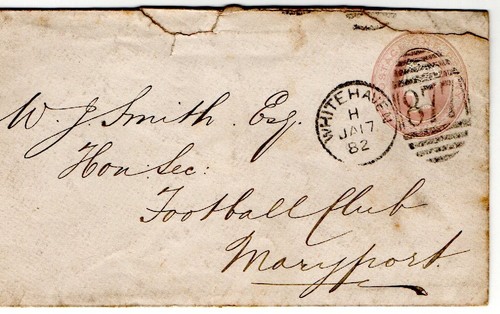 W. J. Smith. Esq.
Hon Sec:
Football Club
Maryport.
WHITEHAVEN
H
JA 17
82
877